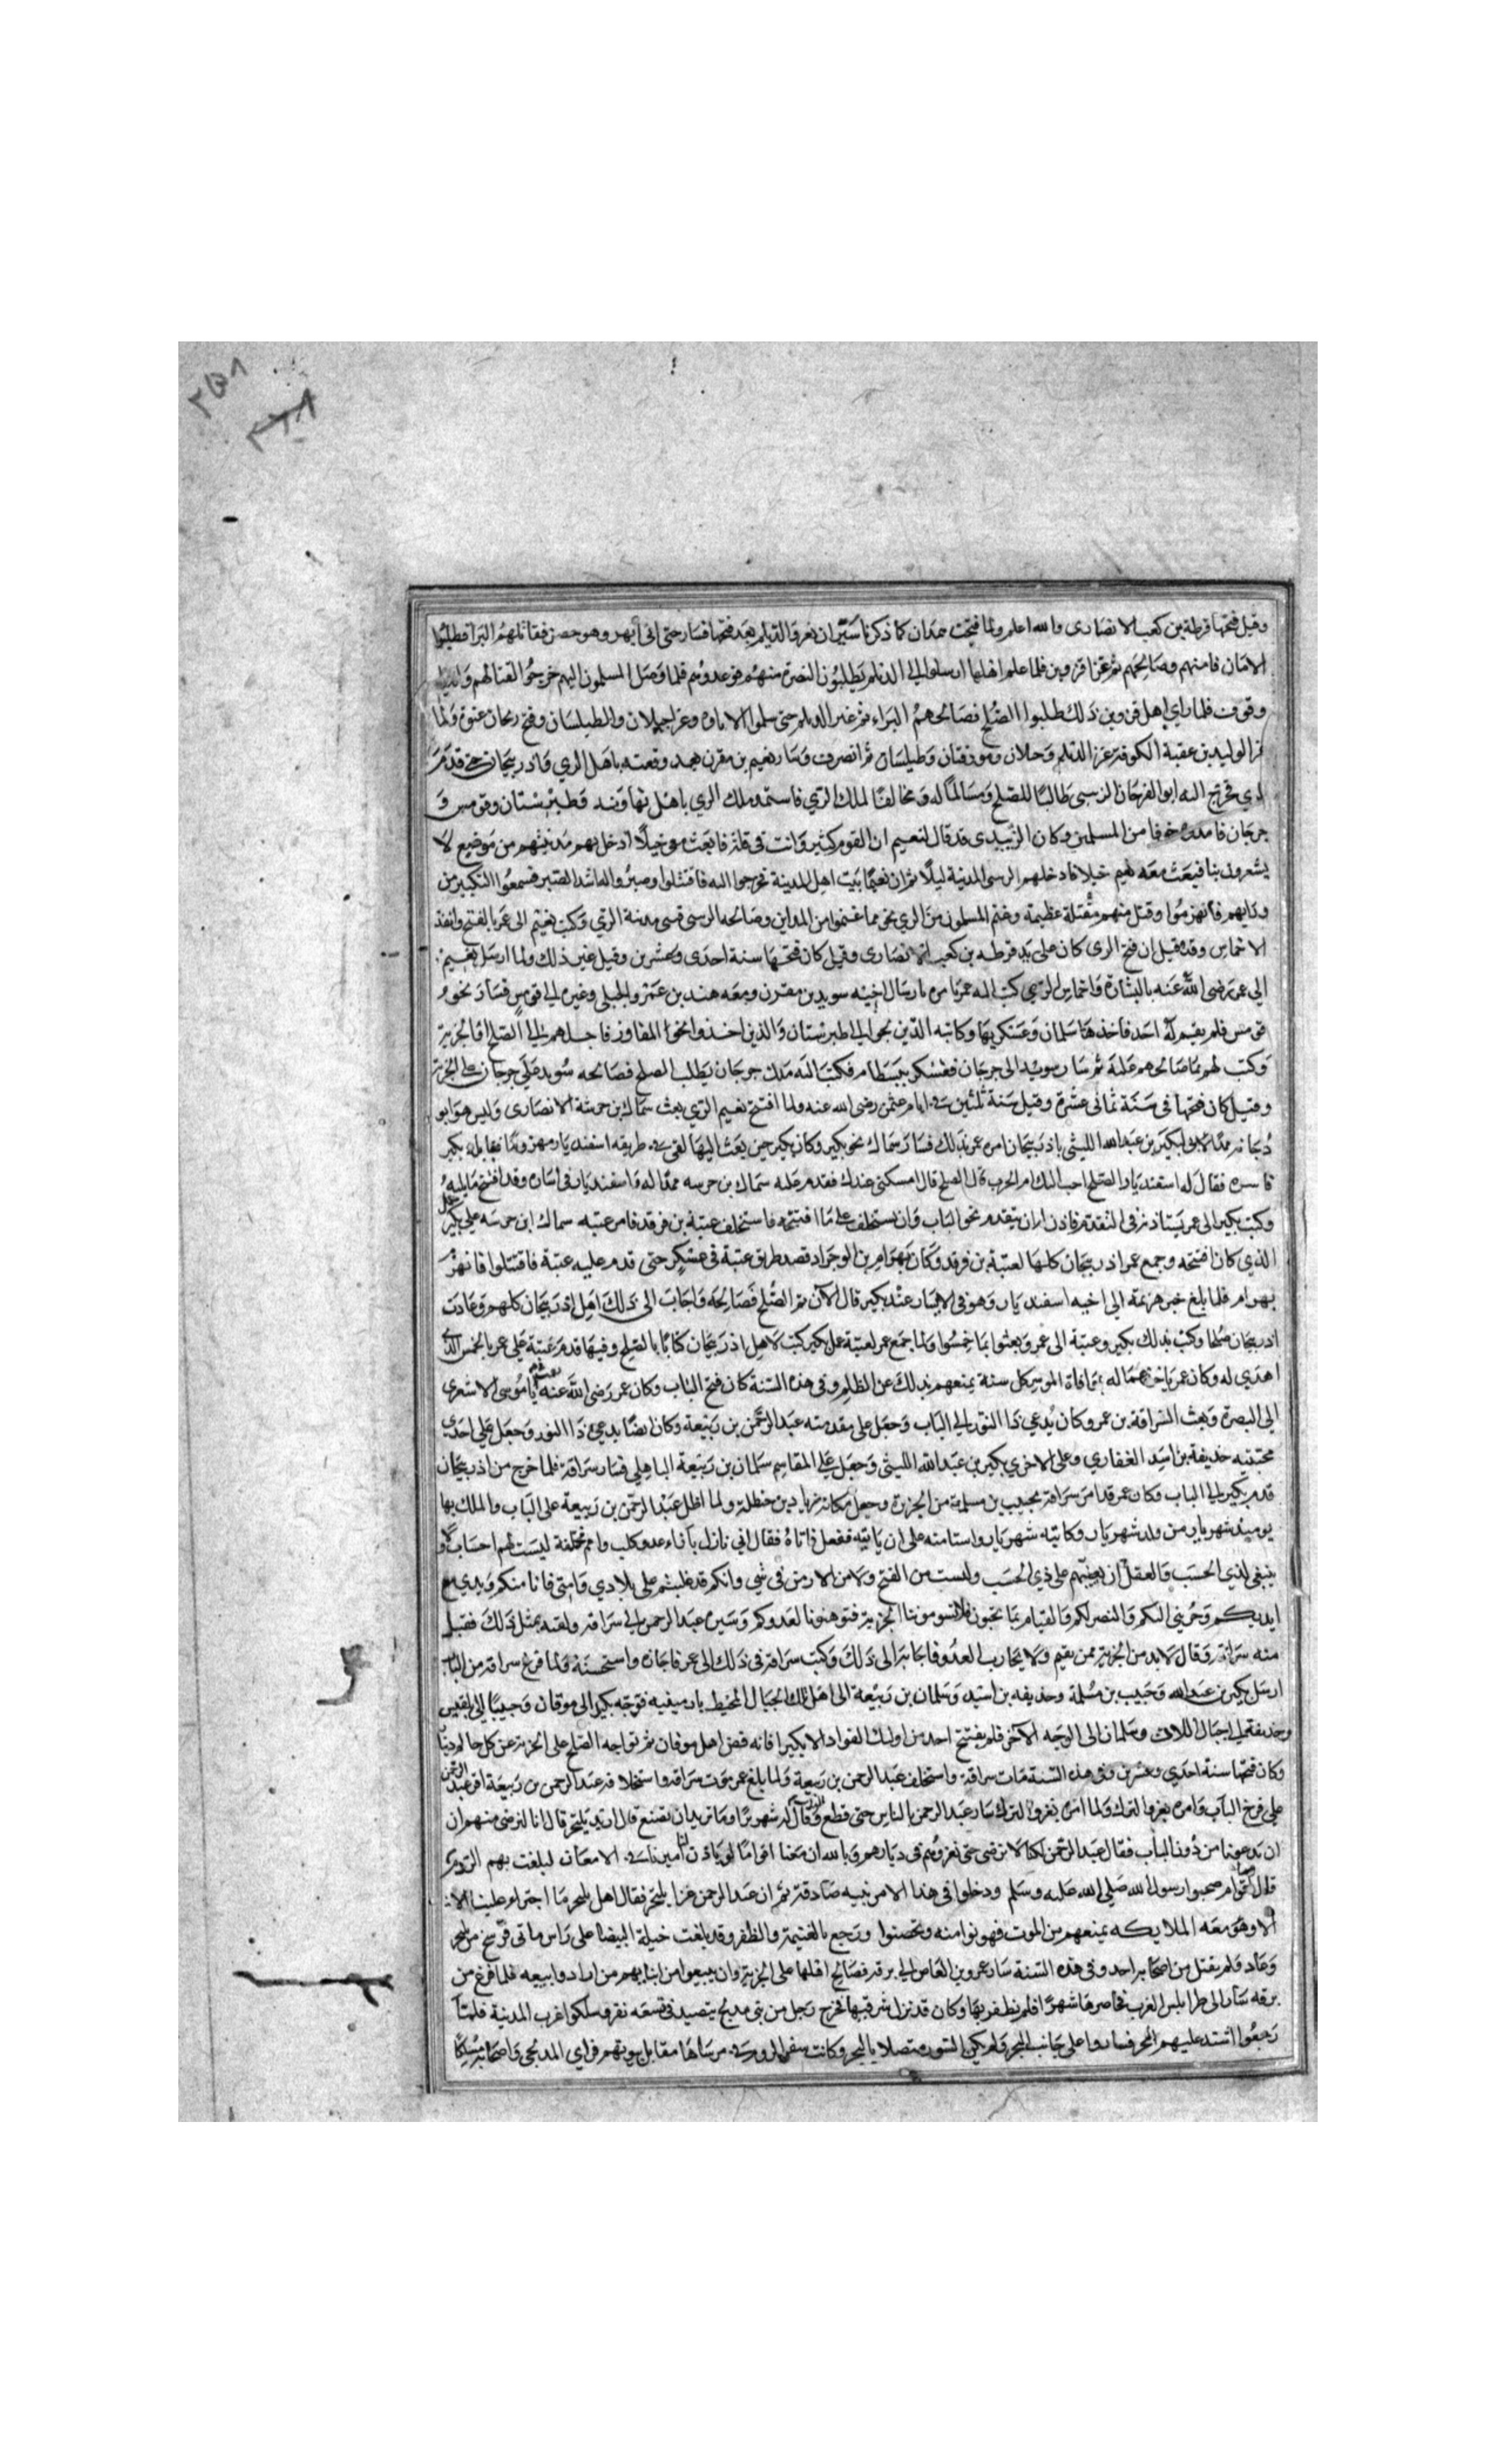 وقيل فتحها قرظة بن كعب الانصارى والله اعلم ولما فتحت همدان كما ذكرنا سيران نعرف الديلم بعد فتحها فسار حتى اتى ابهر وهو حصن فقاتلهم البرا فطلبوا
الامان فامنهم وصالحهم ثم غزا قزوين فلما علم اهلها ارسلوا الى الديلم يطلبون النصرة منهم فوعدوهم فلما وصل المسلمون اليهم خرجوا لقتالهم والديلم
وقوف فلما راي اهل قزوين ذلك طلبوا الصلح فصالحهم البراء ثم غير الديلم حتى سلموا الاتاوه وغزا جيلان والطيلسان وفتح زنجان عنوة ولما
الوليد بن عقبة الكوفة غزا الديلم وجيلان وموقان وطيلسان ثم انصرف وسار نعيم بن مقرن بعد وقعته باهل الري واذربيجان حتى قدم
الري فخرج اليه ابو الفرخان الزيبي طالبا للصلح ومسالما له ومخالفا لملك الري فاستمد ملك الري باهل نهاوند وطبرستان وقومس و
جرجان فامدوه خوفا من المسلمين وكان الزبيدى قد قال لنعيم ان القوم كثير وانت في قلة فابعث معى خيلا ادخل بهم مدينتهم من موضع لا
يشعرون بنا فبعث معه نعيم خيلا فادخلهم الزيبي المدينة ليلا ثم ان نعيما بيت اهل المدينة فخرجوا اليه فاقتتلوا وصبروا له اشد الصبر فسمعوا التكبير من
ورايهم فانهزموا وقتل منهم مقتلة عظيمة وغنم المسلمون من الري نحو مما غنموا من المداين وصالحه الزيبي على مدينة الري وكتب نعيم الى عمر بالفتح وانفذ
الاخماس وقد قيل ان فتح الرى كان على يد قرظه بن كعب الانصارى وقيل كان فتحها سنة احدى وعشرين وقيل غير ذلك ولما ارسل نعيم
الى عمر رضى الله عنه بالبشارة واخماس الري كتب اليه عمر يامره بارسال اخيه سويد بن مقرن ومعه هند بن عمرو الجملى وغيره الى قومس فسار نحو
قومس فلم يقم له احد فاخذها سلمان وعسكر بها وكاتبه الذين نجوا الى طبرستان والذين اخذوا نحو المفاوز فاجابهم الى الصلح او الجزية
وكتب لهم بما صالحوهم عليه ثم سار سويد الى جرجان فعسكر ببسطام فكتب اليه ملك جرجان يطلب الصلح فصالحه سويد على جرجان على الجزية
وقيل كان فتحها فى سنة ثمانى عشرة وقيل سنة ثلثين فى ايام عثمن رضى الله عنه ولما افتتح نعيم الري بعث سماك بن خرشة الانصارى وليس هو ابو
دجانه ممدا لبكير بن عبد الله الليثي باذربيجان امره عمر بذلك فسار سماك نحو بكير وكان بكير حين بعث اليها لقى فى طريقه اسفنديار مهزوما فقاتله بكير
فاسره فقال له اسفنديار الصلح احب اليك ام الحرب قال الصلح قال امسكنى عندك فقدم عليه سماك بن خرسه ممدا له واسفنديار فى اساره وقد افتتح ما يليه
وكتب بكير الى عمر يستاذنه فى التقدم فاذن له ان يتقدم نحو الباب وان يستخلف على ما افتتحه فاستخلف عتبة بن فرقد فامر عتبه سماك ابن خرسه على عمل بكير
الذي كان افتتحه وجمع عمر اذربيجان كلها لعتبة بن فرقد وكان بهرام بن الوجراد قصد طريق عتبة فى عسكر حتى قدم عليه عتبة فاقتتلوا فانهزم
بهرام فلما بلغ خبر هزيمته الى اخيه اسفنديار وهو فى الاسار عند بكير قال الآن تم الصلح فصالحه واجاب الى ذلك اهل اذربيجان كلهم وعادت
اذربيجان صلحا وكتب بذلك بكير وعتبة الى عمر وبعثوا بما خمسوا ولما جمع عمر لعتبة عمل بكير كتب لاهل اذربيجان كتابا بالصلح وفيها قدم عتبة على عمر بالخبيص الذى
اهدي له وكان عمر ياخذ عماله بموافاة الموسم كل سنة يمنعهم بذلك عن الظلم وفى هذه السنة كان فتح الباب وكان عمر رضى الله عنه ابا موسى الاشعرى
الى البصرة وبعث سراقة بن عمرو كان يدعي ذا النور الى الباب وجعل على مقدمته عبد الرحمن بن ربيعة وكان ايضا يدعى ذا النور وجعل على احدى
مجنبتيه حذيفة بن اسيد الغفاري وعلى الاخرى بكير بن عبد الله الليثي وجعل على المقاسم سلمان بن ربيعة الباهلي فسار سراقة فلما خرج من اذربيجان
قدم بكير الى الباب وكان عمر قد امد سراقة بحبيب بن مسلمة من الجزيرة وجعل مكانه زياد بن حنظلة ولما اطل عبد الرحمن بن ربيعة على الباب والملك بها
يوميذ شهريار من ولد شهريار وكاتبه شهريار واستامنه على ان ياتيه ففعل فاتاه فقال اني نازل بازاء عدو كلب وامم مختلفة ليست لهم احساب ولا
ينبغى لذي الحسب والعقل ان يعينهم على ذي الحسب ولست من الفتح ولا من الارمن فى شي وانكم قد غلبتم على بلادي وامتى فانا منكم ويدي مع
ايديكم وجزيتي اليكم والنصر لكم والقيام بما تحبون فلا تسومونا الجزية فتوهنونا لعدوكم وسيره عبد الرحمن الى سراقه ولقيه بمثل ذلك فقبل
منه سراقة وقال لابد من الجزية ممن يقيم ولا يحارب العدو فاجابه الى ذلك وكتب سراقة فى ذلك الى عمر فاجازه واستحسنه ولما فرغ سراقة من الباب
ارسل بكير بن عبد الله وحبيب بن مسلمة وحذيفه بن اسيد وسلمان بن ربيعة الى اهل تلك الجبال المحيط بارمينيه فوجه بكيرا الى موقان وحبيبا الى تفليس
وحذيفة الى جبال اللان وسلمان الى الوجه الآخر فلم يفتتح احد من اوليك القواد الا بكيرا فانه فض اهل موقان ثم تراجعوا الصلح على الجزية عن كل حالم دينار
وكان فتحها سنة احدي وعشرين وفى هذه السنة مات سراقة واستخلف عبد الرحمن بن ربيعة ولما بلغ عمر موت سراقه واستخلافه عبد الرحمن بن ربيعة اقر عبد الرحمن
على فرج الباب وامره بغزو الترك ولما امره بغزو الترك سار عبد الرحمن بالناس حتى قطع الباب وقال له شهربراز ما تريد ان تصنع قال اريد بلنجر قال انا لنرضى منهم ان
ان يدعونا من دون الباب فقال عبد الرحمن لكنا لا نرضى حتى نغزوهم فى ديارهم وبالله ان معنا اقواما لو ياذن لنا اميرنا فى الامعان لبلغت بهم الروم
قال وما هم قال اقوام صحبوا رسول الله صلى الله عليه وسلم ودخلوا فى هذا الامر بنيه صادقة ثم ان عبد الرحمن غزا بلنجر فقال اهل بلنجر ما اجترا علينا الا
الا وهو معه الملايكه يمنعهم من الموت فهربوا منه وتحصنوا ورجع بالغنيمة والظفر وقد بلغت خيله البيضا على راس مائتى فرسخ من بلنجر
وعاد ولم يقتل من اصحابه احد وفى هذه السنة سار عمرو بن العاص الى برقة فصالح اهلها على الجزية وان يبيعوا من ابنايهم من ارادوا بيعه فلما فرغ من
برقه سار الى طرابلس الغرب فحاصرها شهرا فلم يظفر بها وكان قد نزل شرقيها فخرج رجل من بنى مدلج يتصيد فى تسعه نفر وسلكوا غرب المدينة فلما
رجعوا اشتد عليهم الحر فساروا على جانب البحر ولم يكن السور متصلا بالبحر وكانت سفن الروم فى مرساها مقابل بيوتهم فراي المدلجى واصحابه مسلكا